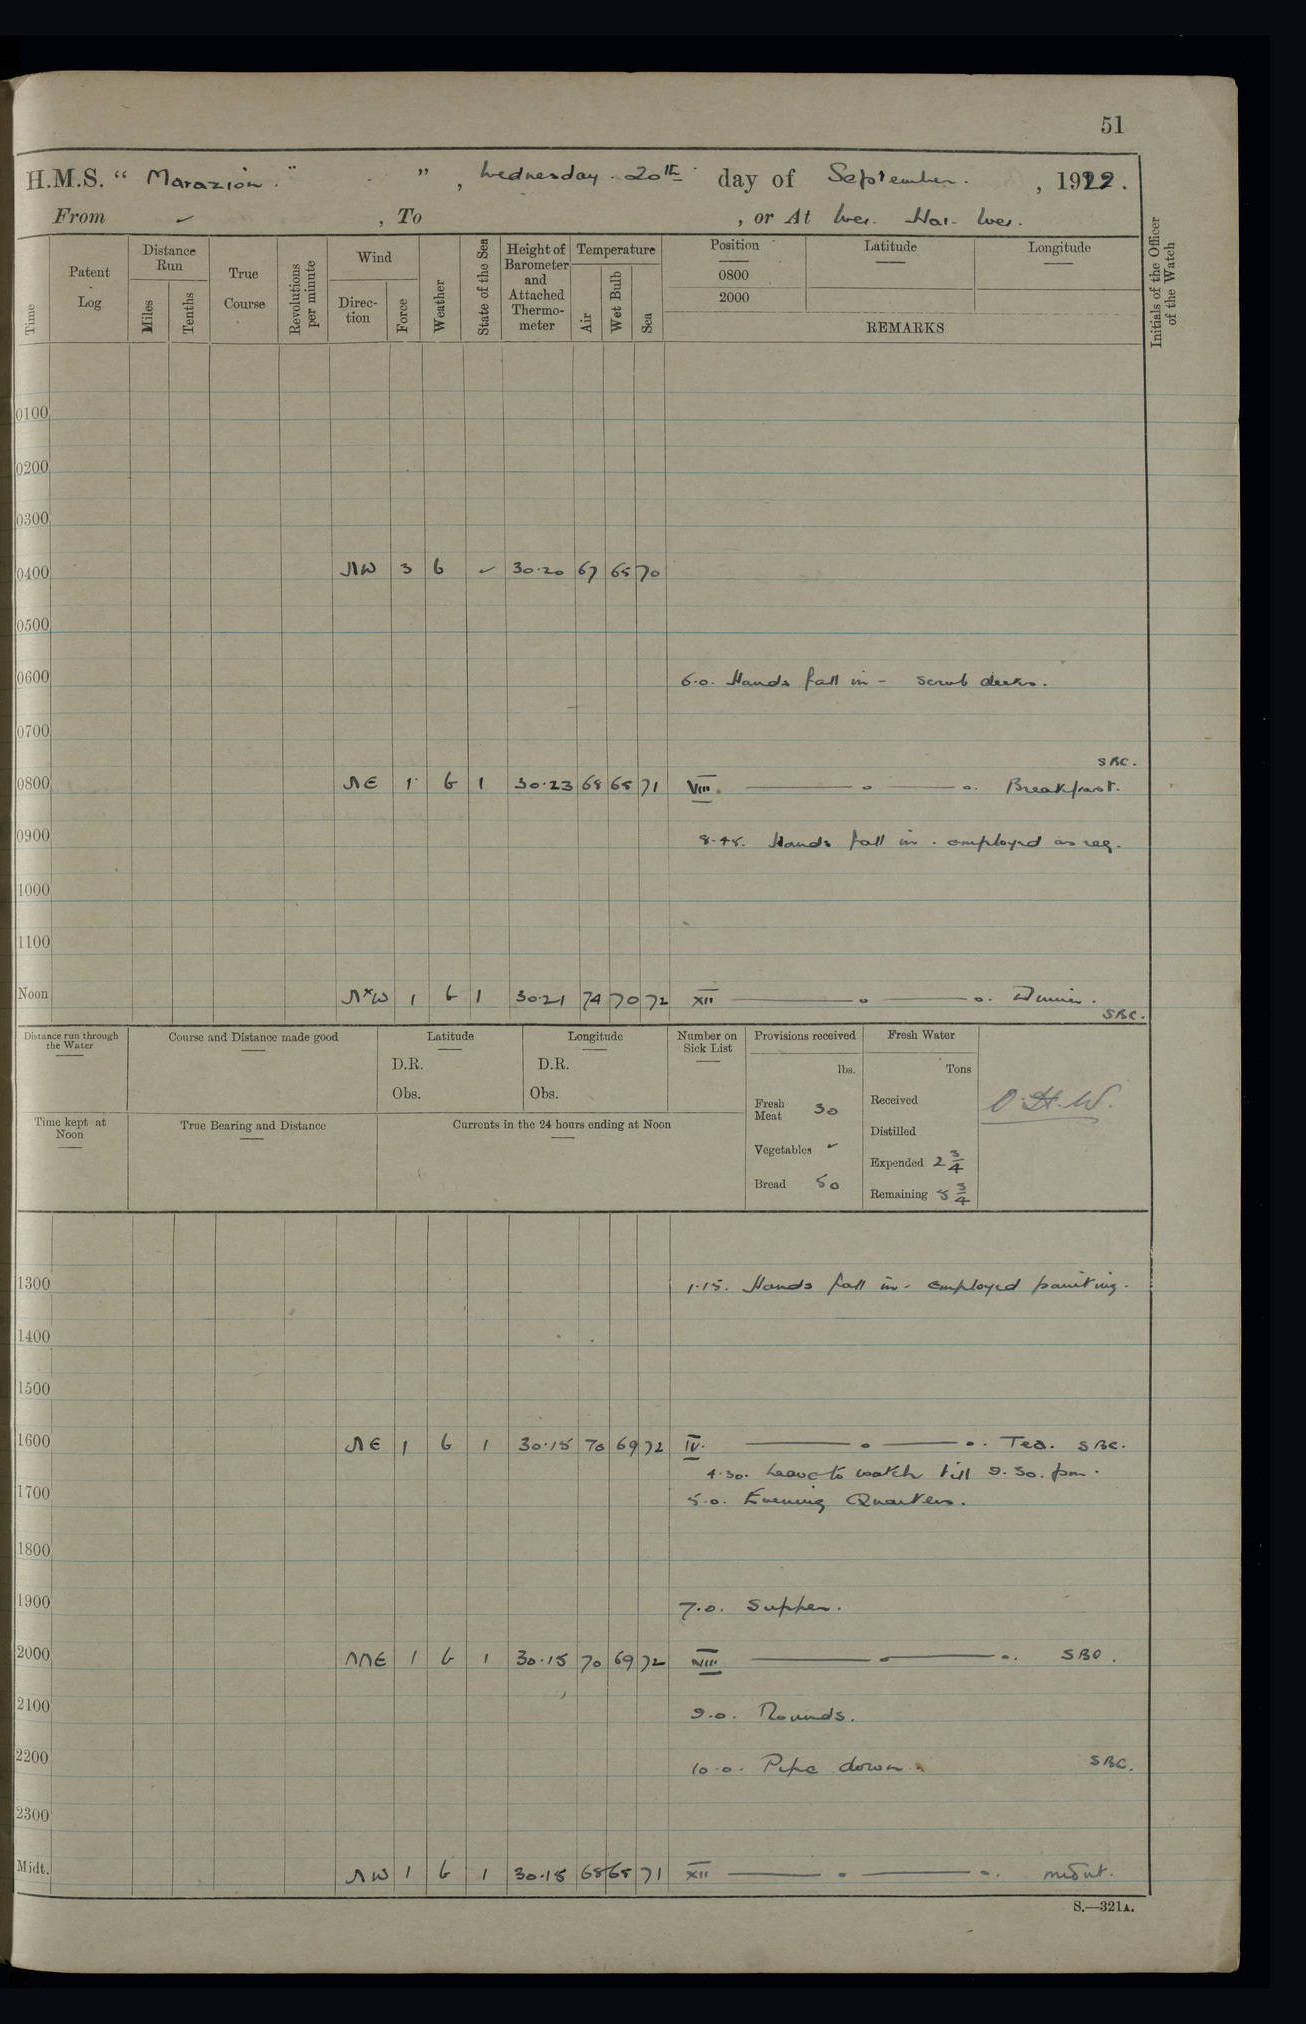 51
H.M.S. “ Marazion. ” , Wednesday. 20th day of September. , 1922.
From ✓ , To , or At Wei. Hai. Wei.
Time
Patent Log
Distance Run
Miles
Tenths
True Course
Revolutions per minute
Wind
Direction
Force
Weather
State of the Sea
Height of Barometer and Attached Thermometer
Temperature
Air
Wet Bulb
Sea
Position
0800
2000
Latitude
Longitude
REMARKS
Initials of the Officer of the Watch
0100
0200
0300
0400 NW 3 b ✓ 30.20 67 65 70
0500
0600 6.0. Hands fall in - scrub decks.
0700
SBC.
0800 NE 1 b 1 30.23 68 65 71 VIII. Breakfast.
0900 8.45. Hands fall in. employed as req.
1000
1100
Noon NxW 1 b 1 30.21 74 70 72 XII Dinner.
SBC.
Distance run through the Water
Course and Distance made good
Latitude
D.R.
Obs.
Longitude
D.R.
Obs.
Number on Sick List
Provisions received
lbs.
Fresh Meat 30
Vegetables ✓
Bread 50
Fresh Water
Tons
Received
Distilled
Expended 2 3/4
Remaining 5 3/4
O.H.W.
Time kept at Noon
True Bearing and Distance
Currents in the 24 hours ending at Noon
1300 1.15. Hands fall in - employed painting.
1400
1500
1600 NE 1 b 1 30.15 70 69 72 IV. Tea. SBC.
4.30. Leave to watch till 9.30. pm.
1700 5.0. Evening Quarters.
1800
1900 7.0. Supper.
2000 NNE 1 b 1 30.15 70 69 72 VIII SBC.
2100 9.0. Rounds.
2200 10.0. Pipe down. SBC.
2300
Midt. NW 1 b 1 30.15 68 65 71 XII midnt.
S.—321A.